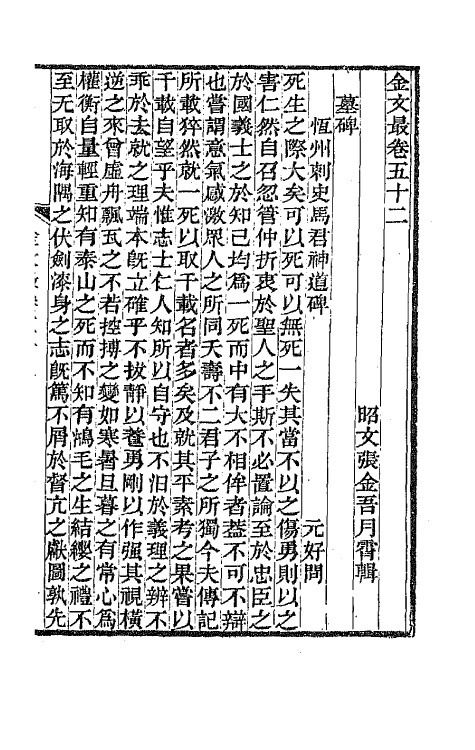 金文最卷五十二
昭文張金吾月霄輯
墓碑
恆州刺史馬君神道碑
元好問
死生之際大矣可以死可以無死一失其當不以之傷勇則以之
害仁然自召忽管仲折衷於聖人之手斯不必置論至於忠臣之
於國義士之於知己均爲一死而中有大不相侔者葢不可不辯
也嘗謂意氣感激眾人之所同夭壽不二君子之所獨今夫傳記
所載猝然就一死以取千載名者多矣及就其平素考之果嘗以
千載自望乎夫惟志士仁人知所以自守也不汨於義理之辨不
乖於去就之理端本旣立確乎不拔靜以養勇剛以作强其視橫
逆之來曾虛舟飄瓦之不若控搏之變如寒暑旦暮之有常心爲
權衡自量輕重知有泰山之死而不知有鴻毛之生結纓之禮不
至无取於海隅之伏劍漆身之志旣篤不屑於督亢之獻圖孰先